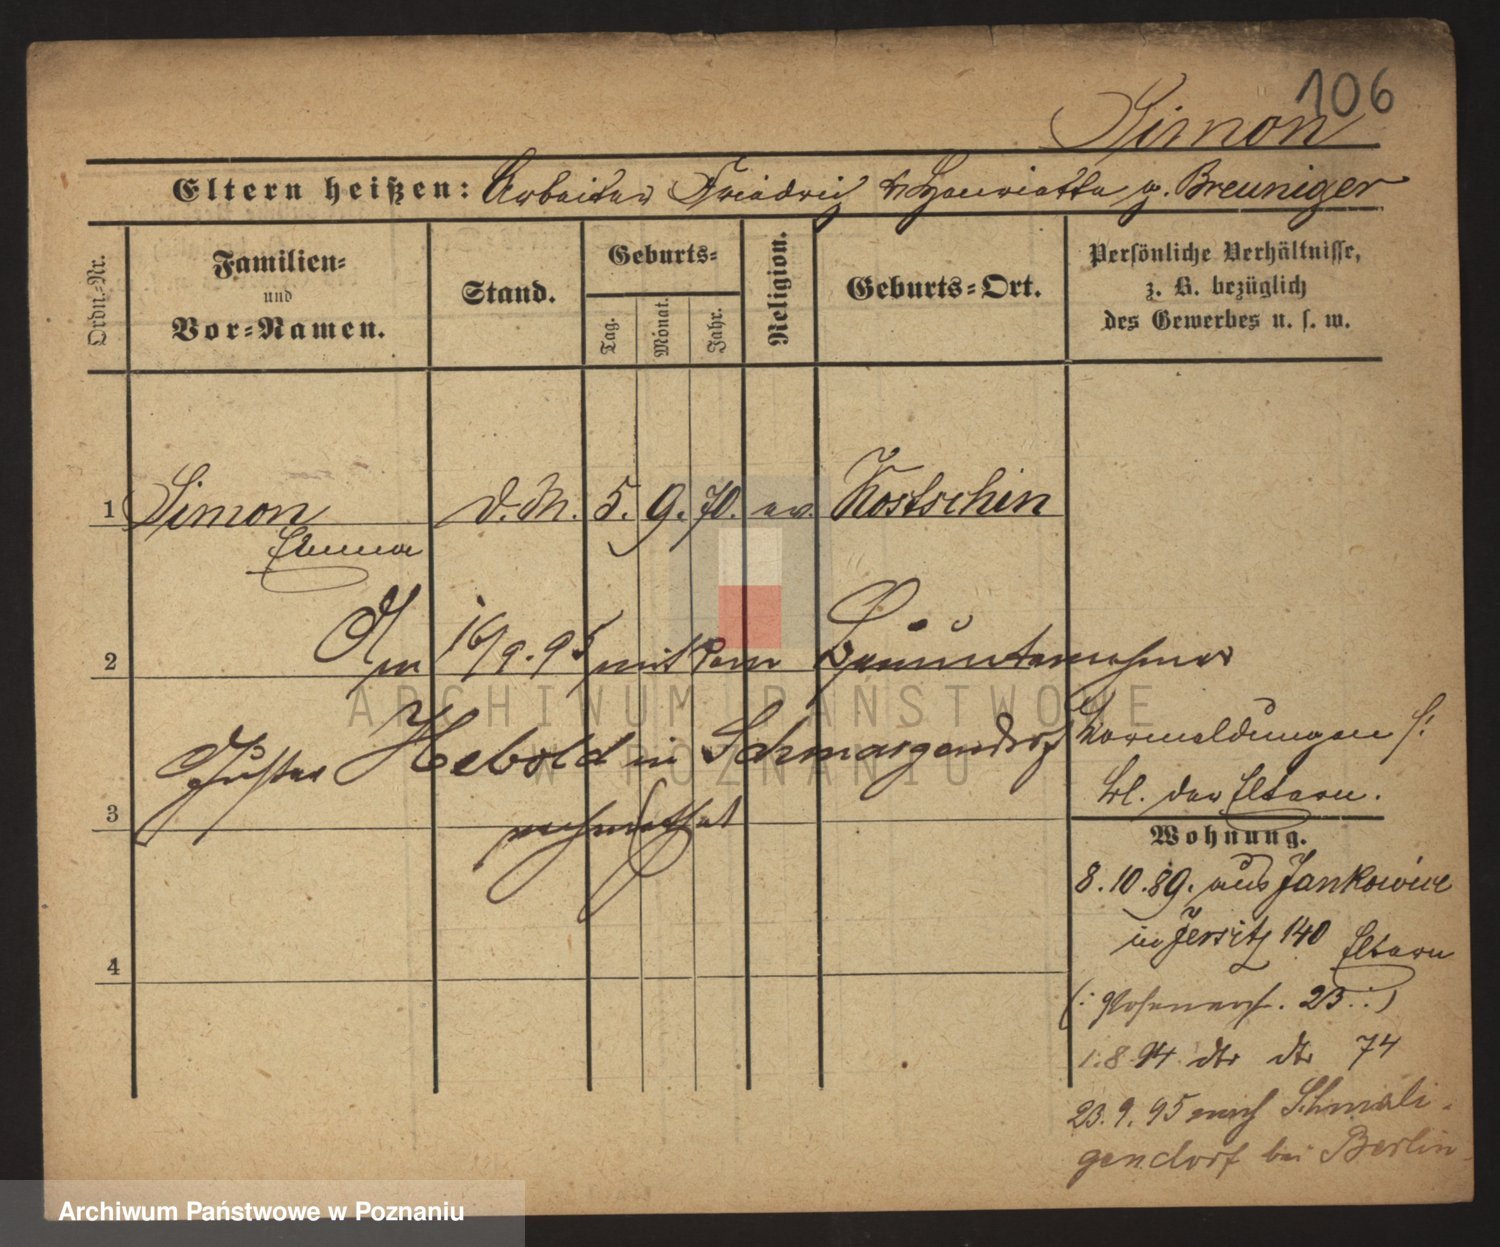 106
Simon
Eltern heißen: Arbeiter Friedrich u Henriette g. Breuniger
Ordn.-Nr.
Familien-
und
Vor-Namen.
Stand.
Geburts-
Tag.
Monat.
Jahr.
Religion.
Geburts-Ort.
Persönliche Verhältnisse,
z. B. bezüglich
des Gewerbes u. s. w.
1 Simon d. M. 5. 9. 70. ev. Kostschin
Emma
2 Am 16/9. 95 mit dem Bauunternehmer
Gustav Hebold in Schmargendorf
3 verheirathet
4
Vormeldungen s.
bl. der Eltern.
Wohnung.
8.10.89. aus Jankowice
in Jersitz 140 Eltern
(: Posenerstr. 23 :)
1.8.94 dto dto 74
23.9.95 nach Schmali-
gendorf bei Berlin
ARCHIWUM PAŃSTWOWE
W POZNANIU
Archiwum Państwowe w Poznaniu